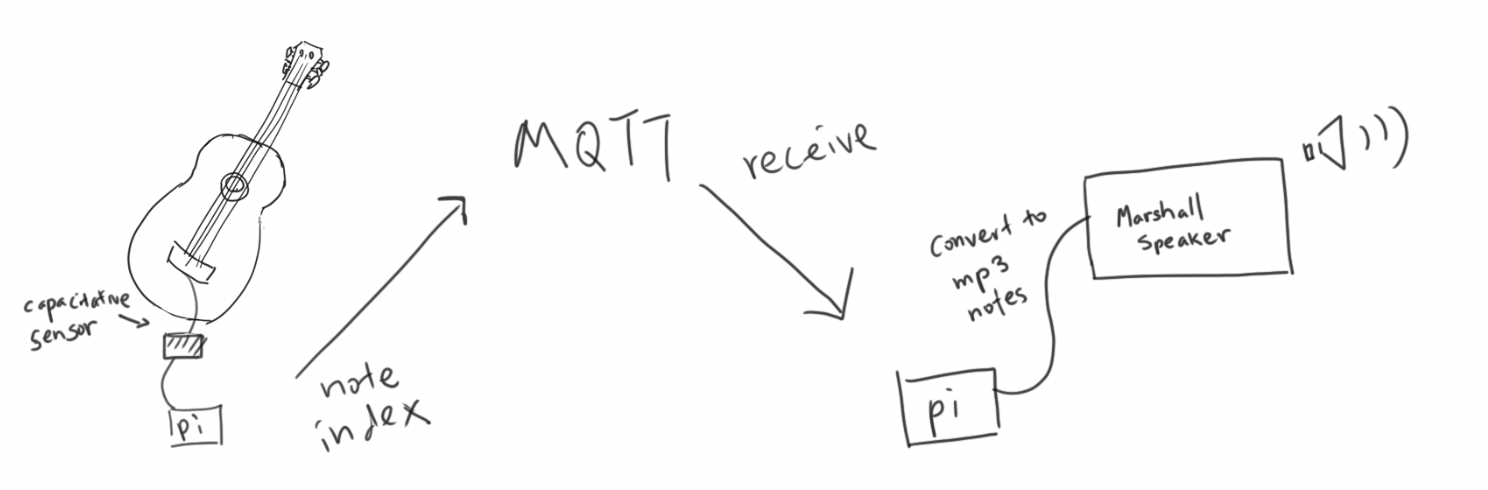 capacitative
sensor
pi
note
index
MQTT
receive
convert to
mp3
notes
pi
Marshall
speaker